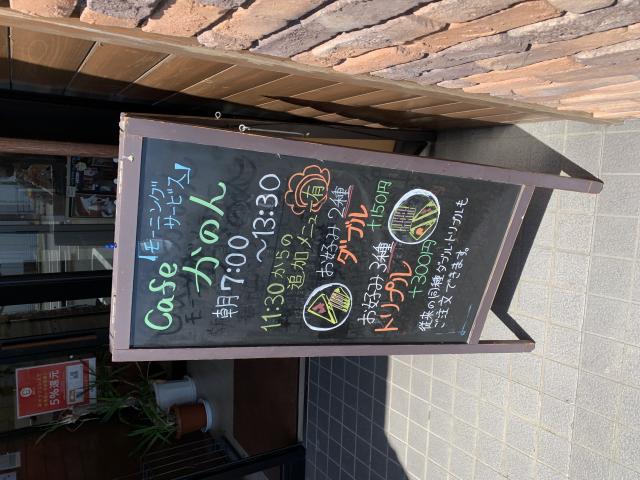 Cafe
【モーニングサービス】
かのん
朝7:00
〜13:30
11:30からの
追加メニュー有
お好み2種
ダブル
+150円
お好み3種
トリプル
+300円
従来の同種ダブル・トリプルも
ご注文できます。
5%還元